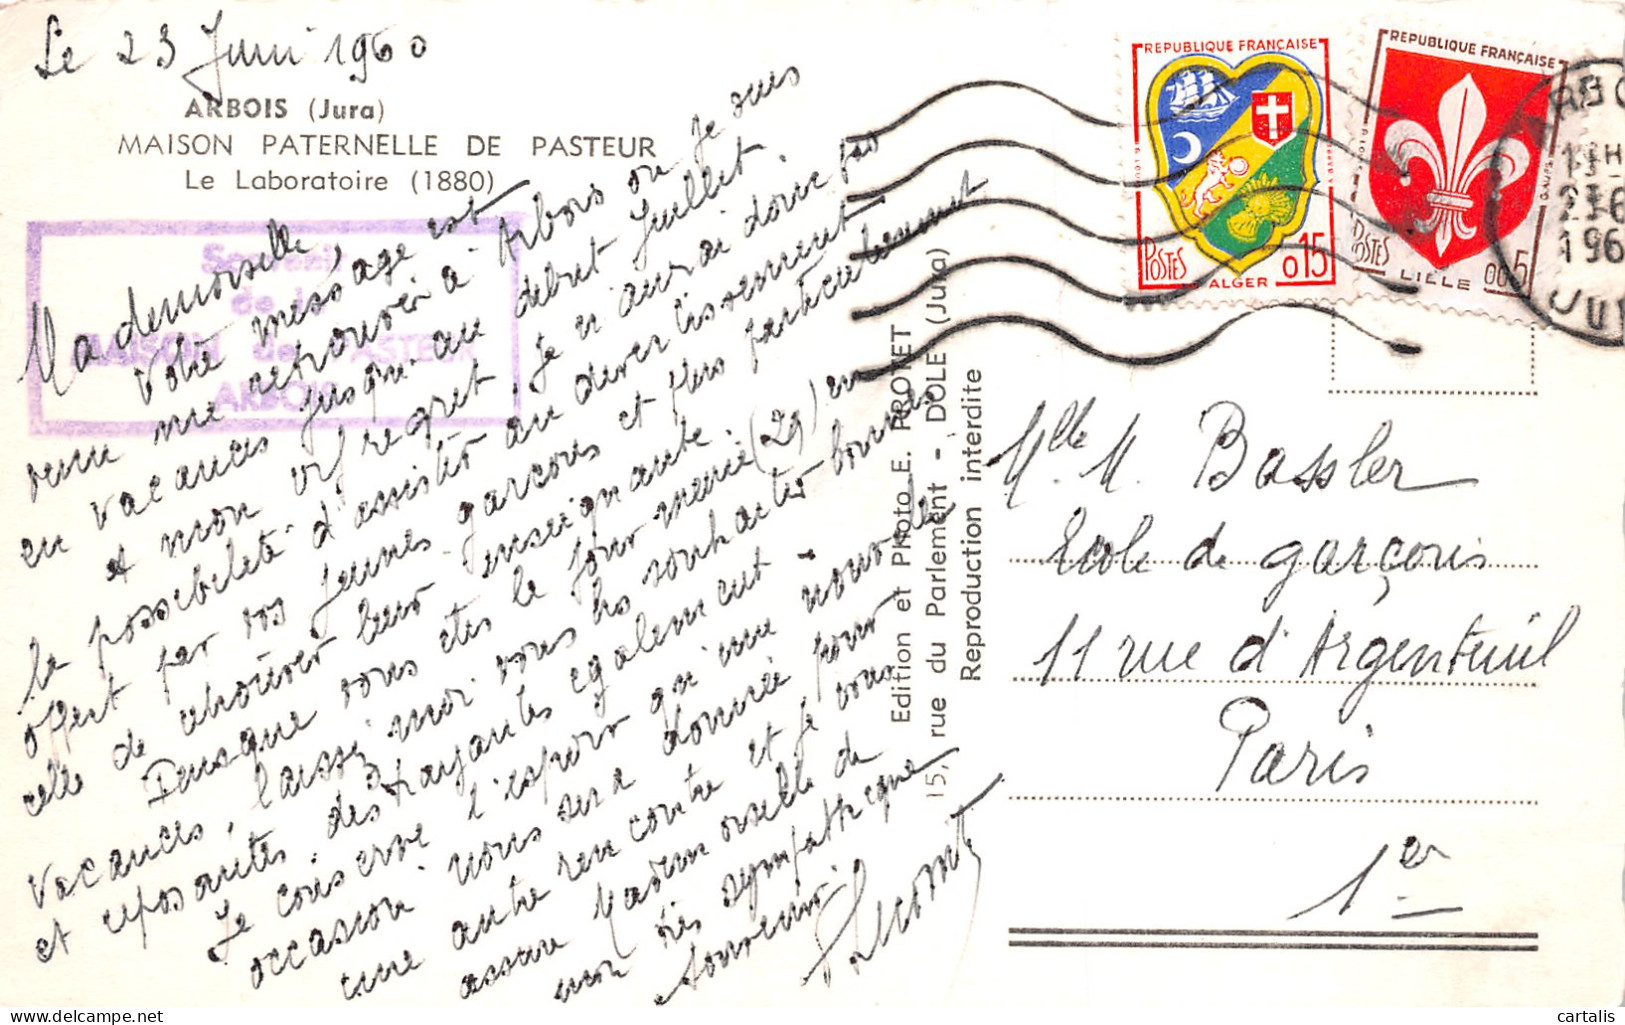 Le 23 Juin 1960
ARBOIS (Jura)
MAISON PATERNELLE DE PASTEUR
Le Laboratoire (1880)
de la
MAISON de PASTEUR
ARBOIS
Mademoiselle,
Votre message est
venu me retrouver à Arbois où je suis
en vacances jusqu'au début Juillet
A mon vif regret, je n'aurai donc pas
la possibilité d'assister au divertissement
offert par vos jeunes garçons et plus particulièrement
celle de retrouver leur enseignante.
Puisque vous êtes le jour même (29) en
vacances, laissez moi vous les souhaiter bonnes
et reposantes, des attrayantes également.
Je conserve l'espoir qu'une nouvelle
occasion nous sera donnée pour
une autre rencontre et je vous
assure Mademoiselle de
mon très sympathique
souvenir.
Edition et Photo E. PROTET
15, rue du Parlement - DOLE (Jura)
Reproduction interdite
REPUBLIQUE FRANÇAISE
POSTES
0,15
ALGER
REPUBLIQUE FRANÇAISE
POSTES
LILLE
0,05
Mlle. M. Bassler
Ecole de garçons
11 rue d'Argenteuil
Paris
1er
cartalis